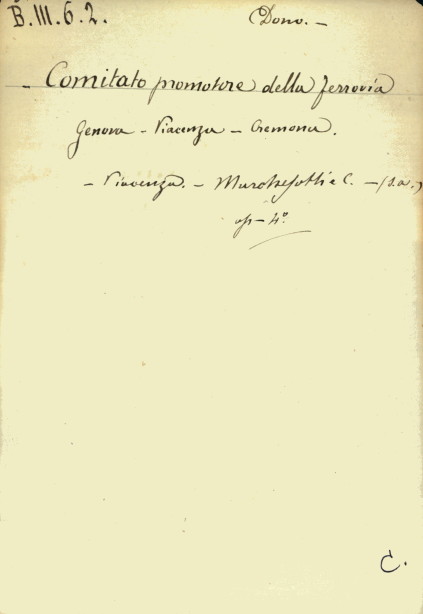 B.III.6.2. Dono.—
- Comitato promotore della ferrovia
Genova - Piacenza - Cremona.
- Piacenza. - Marchesotti e C. - (s.a.)
op - 4°
C.